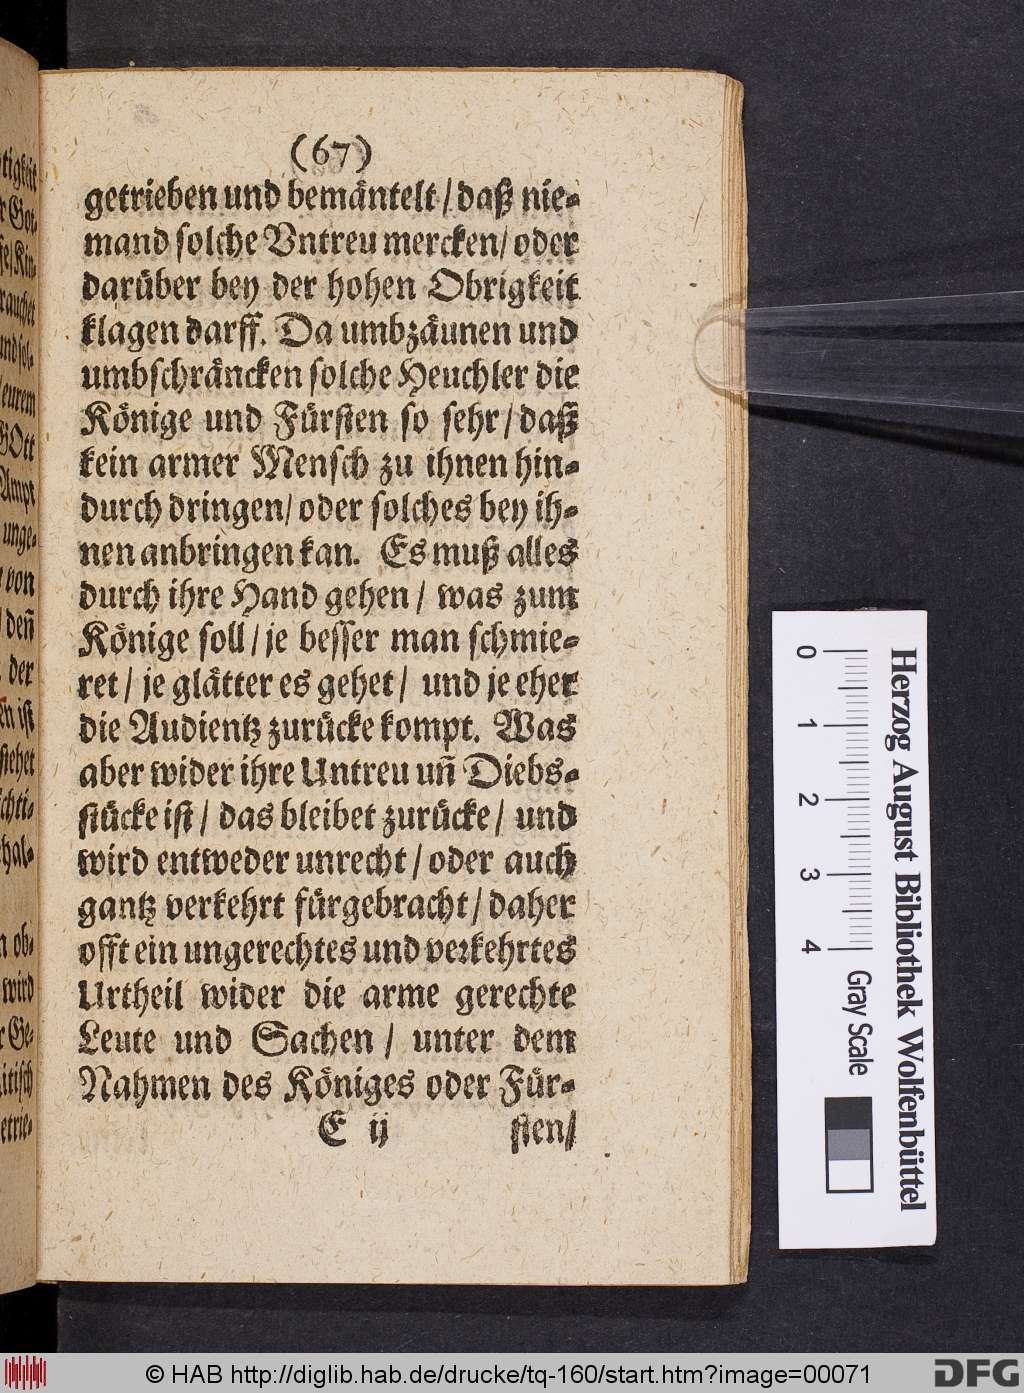 (67)
getrieben und bemäntelt / daß nie-
mand solche Vntreu mercken / oder
darüber bey der hohen Obrigkeit
klagen darff. Da umbzäunen und
umbschräncken solche Heuchler die
Könige und Fürsten so sehr / daß
kein armer Mensch zu ihnen hin-
durch dringen / oder solches bey ih-
nen anbringen kan. Es muß alles
durch ihre Hand gehen / was zum
Könige soll / je besser man schmie-
ret / je glätter es gehet / und je eher
die Audientz zurücke kompt. Was
aber wider ihre Untreu uñ Diebs-
stücke ist / das bleibet zurücke / und
wird entweder unrecht / oder auch
gantz verkehrt fürgebracht / daher
offt ein ungerechtes und verkehrtes
Urtheil wider die arme gerechte
Leute und Sachen / unter dem
Nahmen des Königes oder Für-
E ij sten /
eurem
GOtt
Ampt
unge-
von
deñ
der
ist
wird
0 1 2 3 4
Gray Scale
Herzog August Bibliothek Wolfenbüttel
© HAB http://diglib.hab.de/drucke/tq-160/start.htm?image=00071
DFG